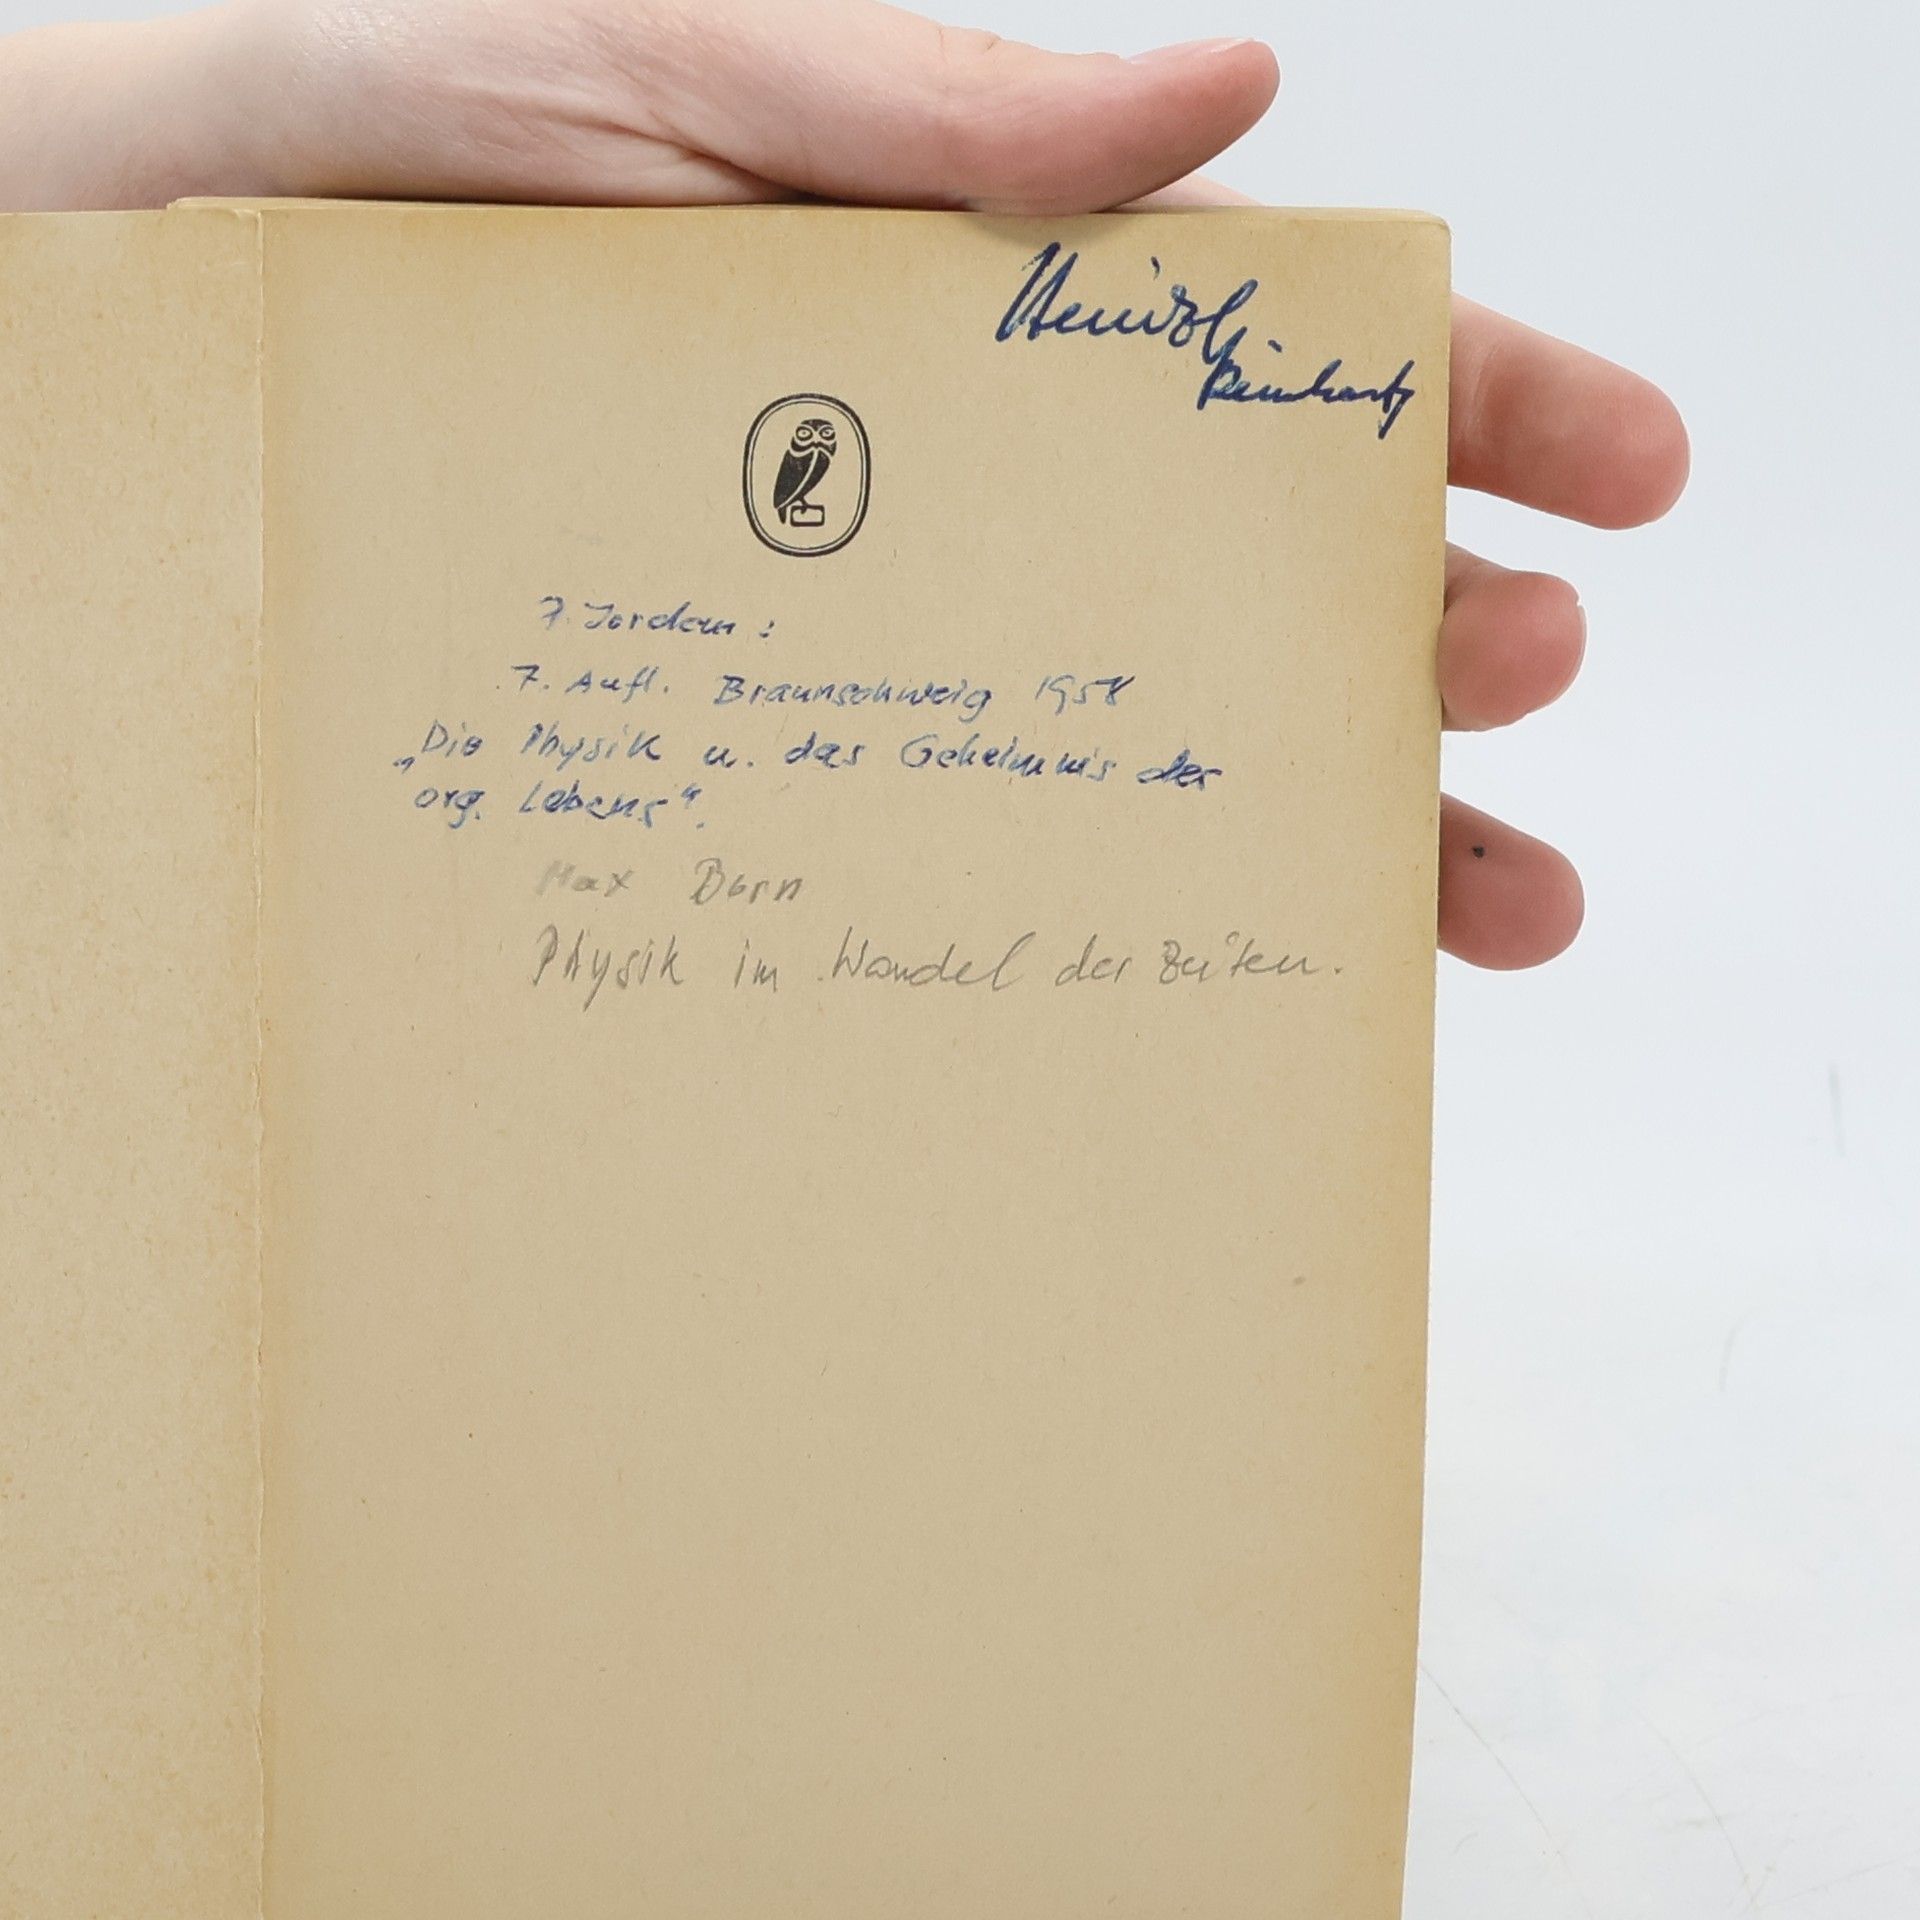 Reinhartz
7. Jordan:
7. Aufl. Braunschweig 1958
„Die Physik u. das Geheimnis des
org. Lebens".
Max Born
Physik im Wandel der Zeiten.